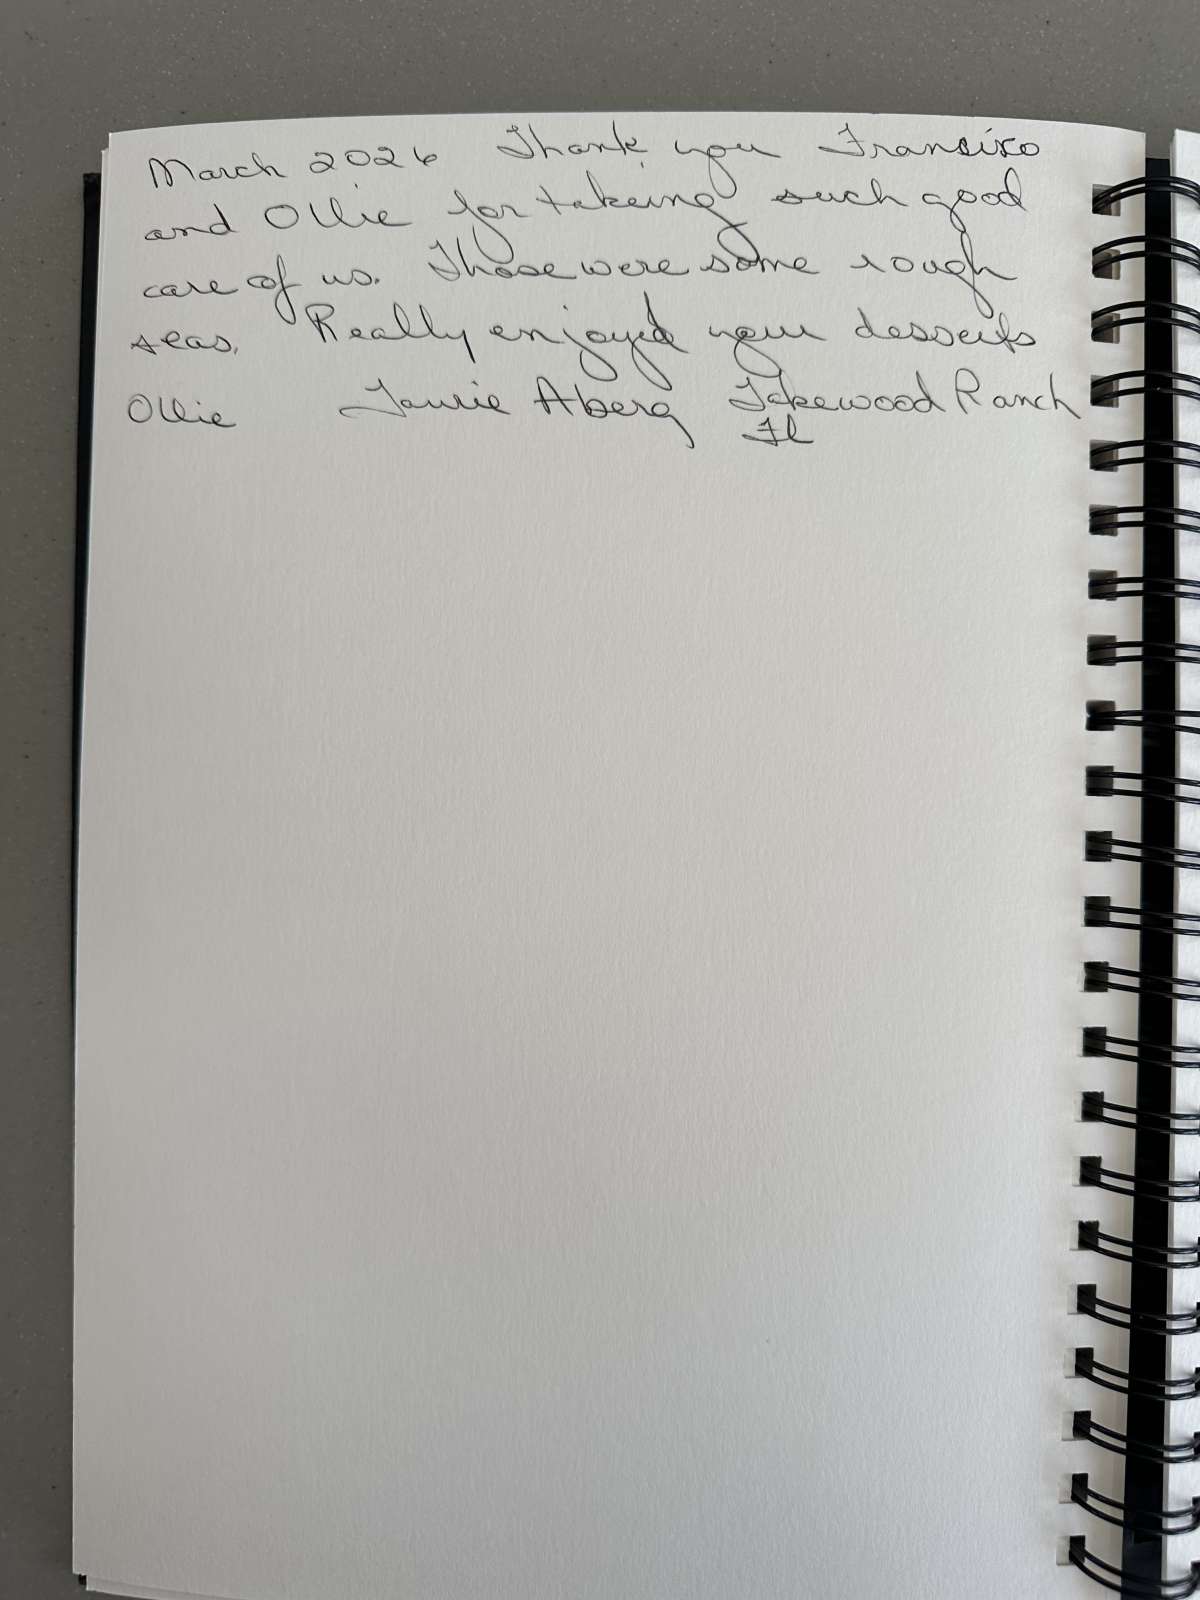 March 2026 Thank you Fransixo
and Ollie for takeing such good
care of us. Those were some rough
seas. Really enjoyed your desserts
Ollie Laurie Aberg Lakewood Ranch
Fl